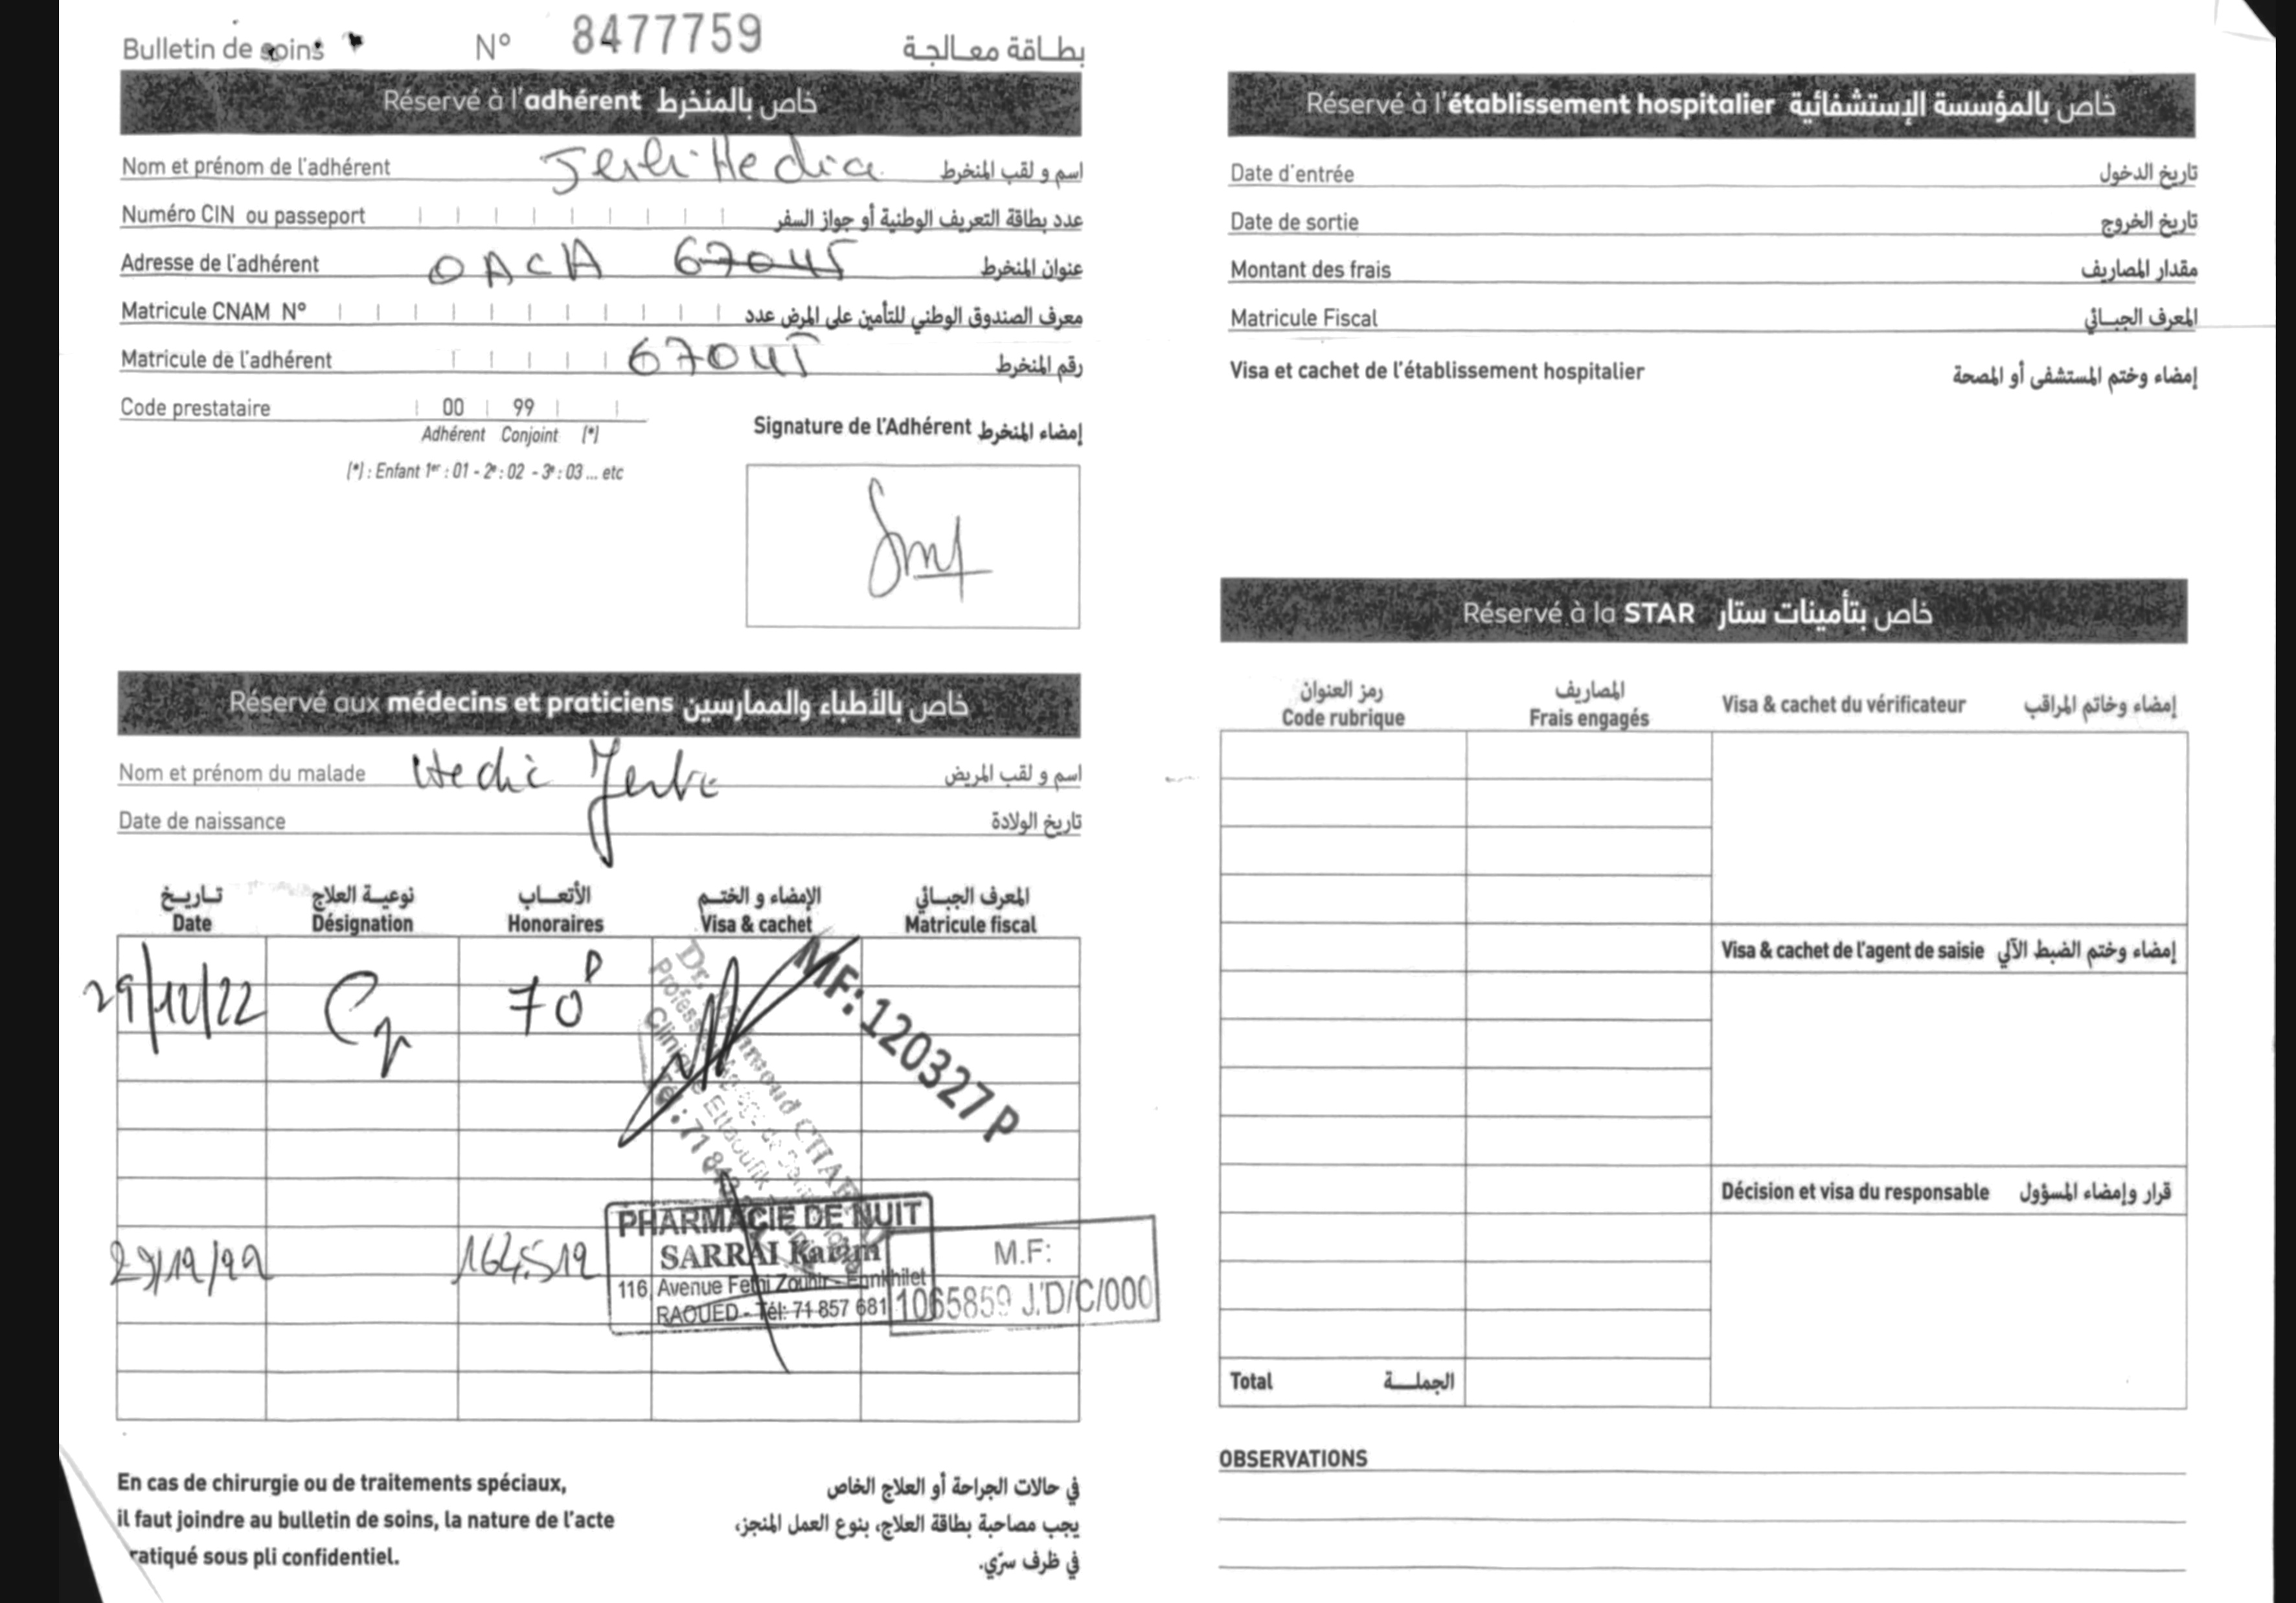 Bulletin de soins N° 8477759 بطاقة معالجة
Réservé à l'adhérent خاص بالمنخرط
Nom et prénom de l'adhérent Jerbi Hedia اسم و لقب المنخرط
Numéro CIN ou passeport عدد بطاقة التعريف الوطنية أو جواز السفر
Adresse de l'adhérent OACA 67045 عنوان المنخرط
Matricule CNAM N° معرف الصندوق الوطني للتأمين على المرض عدد
Matricule de l'adhérent 67045 رقم المنخرط
Code prestataire 00 99
Adhérent Conjoint (*)
(*) : Enfant 1er : 01 - 2e : 02 - 3e : 03 ... etc
Signature de l'Adhérent إمضاء المنخرط
Réservé aux médecins et praticiens خاص بالأطباء والممارسين
Nom et prénom du malade Hedia Jerbi اسم و لقب المريض
Date de naissance تاريخ الولادة
تاريخ نوعية العلاج الأتعاب الإمضاء و الختم المعرف الجبائي
Date Désignation Honoraires Visa & cachet Matricule fiscal
29/12/22 70D
MF: 120327 P
29/12/22 164,519
PHARMACIE DE NUIT
SARRAI Karim
116, Avenue Fethi Zouhir - Ennkhilet
RAOUED - Tél: 71 857 681
M.F:
1065859 J/D/C/000
En cas de chirurgie ou de traitements spéciaux,
il faut joindre au bulletin de soins, la nature de l'acte
ratiqué sous pli confidentiel.
في حالات الجراحة أو العلاج الخاص
يجب مصاحبة بطاقة العلاج، بنوع العمل المنجز،
في ظرف سرّي.
Réservé à l'établissement hospitalier خاص بالمؤسسة الإستشفائية
Date d'entrée تاريخ الدخول
Date de sortie تاريخ الخروج
Montant des frais مقدار المصاريف
Matricule Fiscal المعرف الجبائي
Visa et cachet de l'établissement hospitalier إمضاء وختم المستشفى أو المصحة
Réservé à la STAR خاص بتأمينات ستار
رمز العنوان المصاريف
Code rubrique Frais engagés Visa & cachet du vérificateur إمضاء وخاتم المراقب
Visa & cachet de l'agent de saisie إمضاء وختم الضبط الآلي
Décision et visa du responsable قرار وإمضاء المسؤول
Total الجملة
OBSERVATIONS